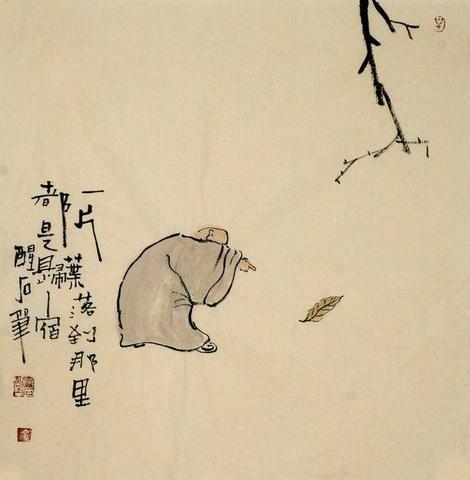 一片葉落到那里
都是歸宿
醒石筆